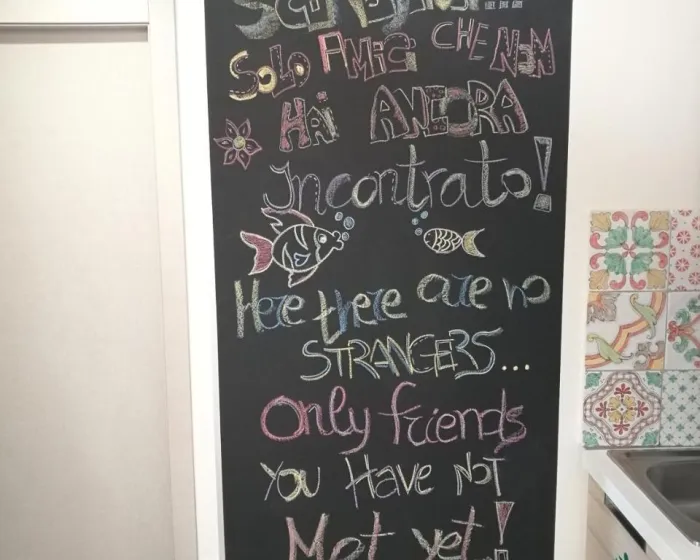 SOLO AMICI CHE NON
HAI ANCORA
Incontrato!
Here there are no
STRANGERS...
Only friends
You Have NOT
Met yet!